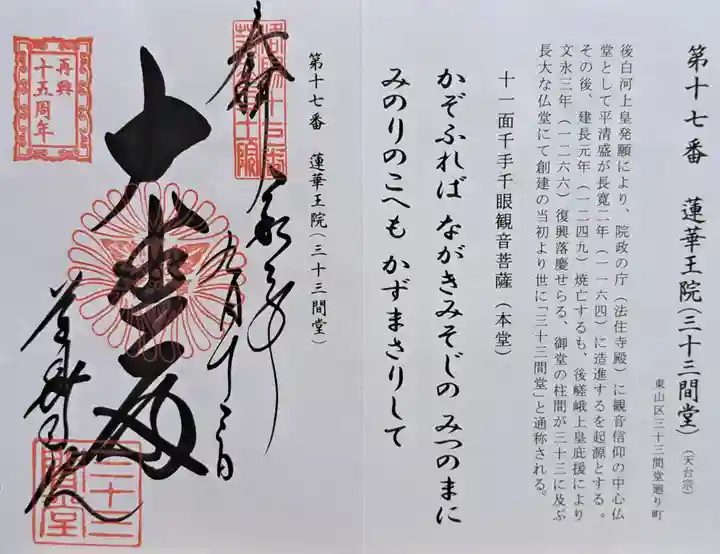 第十七番 蓮華王院(三十三間堂)(天台宗)
東山区三十三間堂廻り町
後白河上皇発願により、院政の庁(法住寺殿)に観音信仰の中心仏
堂として平清盛が長寛二年(一一六四)に造進するを起源とする。
その後、建長元年(一二四九)焼亡するも、後嵯峨上皇庇援により
文永三年(一二六六)復興落慶せらる、御堂の柱間が三十三に及ぶ
長大な仏堂にて創建の当初より世に「三十三間堂」と通称される。
十一面千手千眼観音菩薩(本堂)
かぞふれば ながきみそじの みつのまに
みのりのこへも かずまさりして
第十七番 蓮華王院(三十三間堂)
奉拝
九月十二日
大悲殿
蓮華王院
再興
十五周年
三十三
間堂